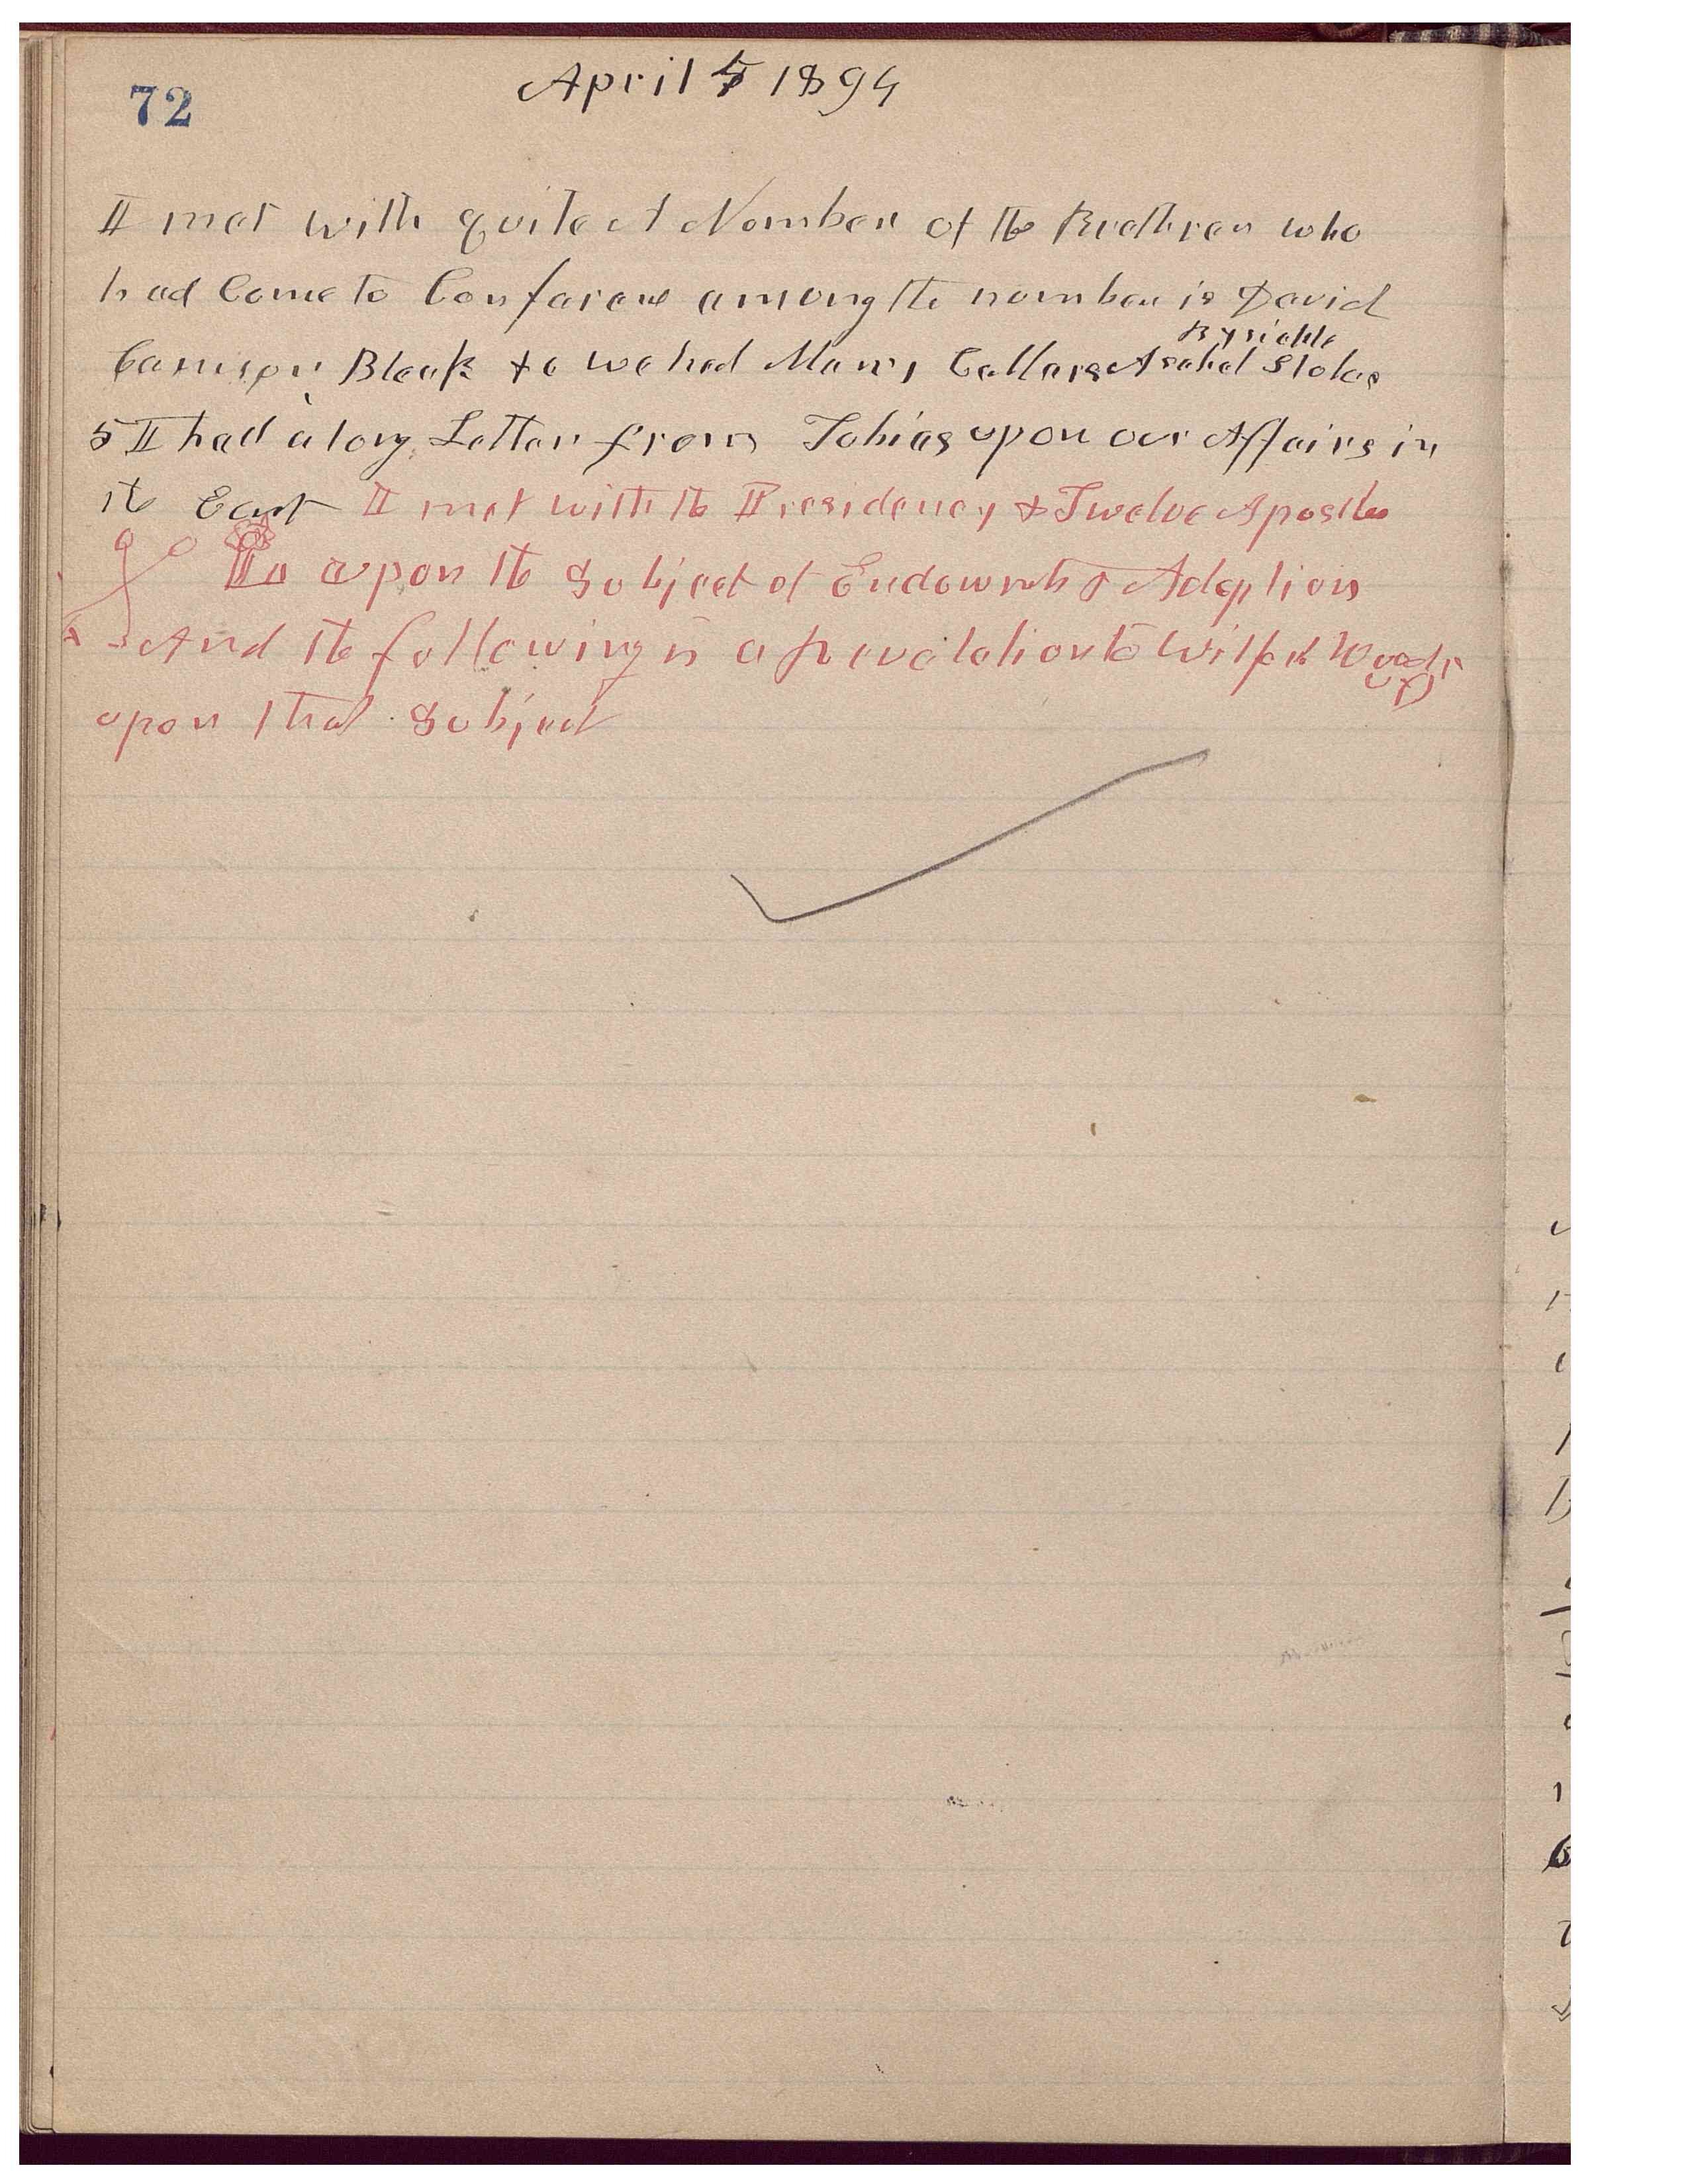 72
April 5 1894
I met with quite A Number of the Brethren who
had Come to Conforence among the number is David
Camison Bleak &c we had Many Callers Asahel Stokes
5 I had a long Letter from Tobias upon our Affairs in
the East I met with the Presidency & Twelve Apostles
upon the Subject of Endowmts & Adoption
And the following is a Revelation to Wilford Woodruff
upon that Subject